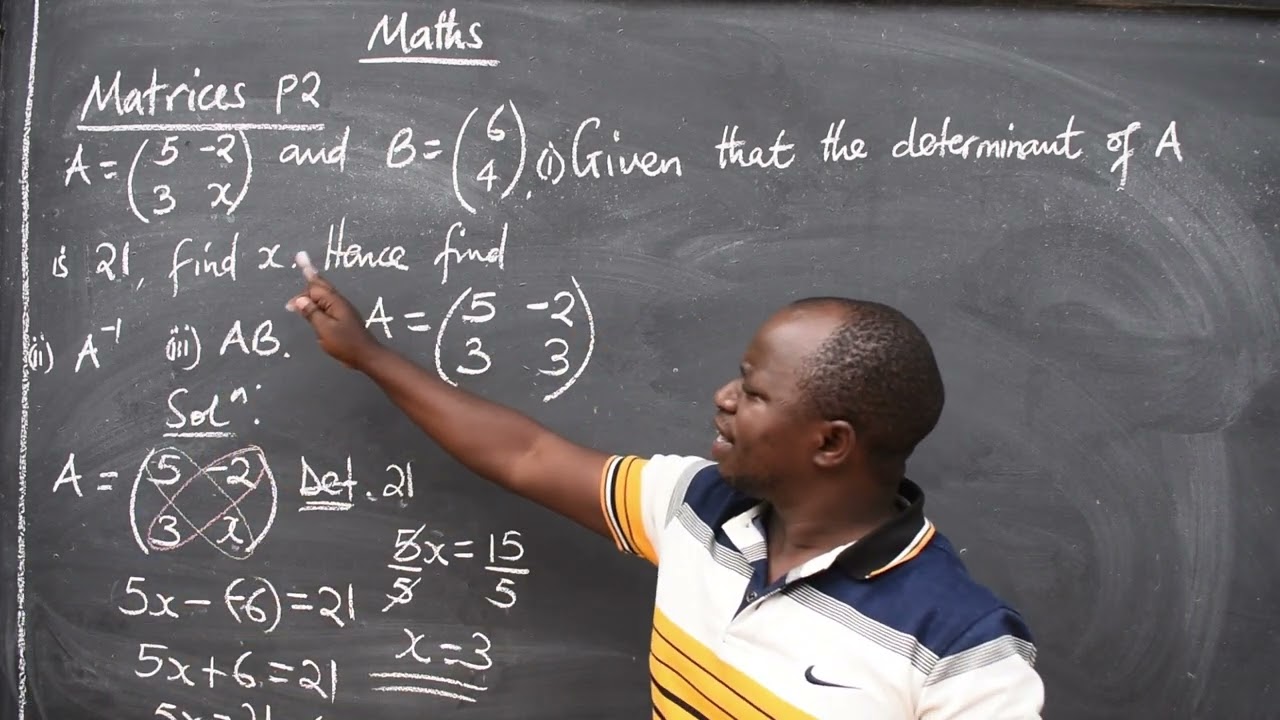 Maths
Matrices P2
A = (5 -2
3 x) and B = (6
4). (i) Given that the determinant of A
is 21, find x. Hence find
(ii) A⁻¹ (iii) AB.
A = (5 -2
3 3)
Solⁿ:
A = (5 -2
3 x) Det. 21
5x - (-6) = 21
5x + 6 = 21
5x/5 = 15/5
x = 3